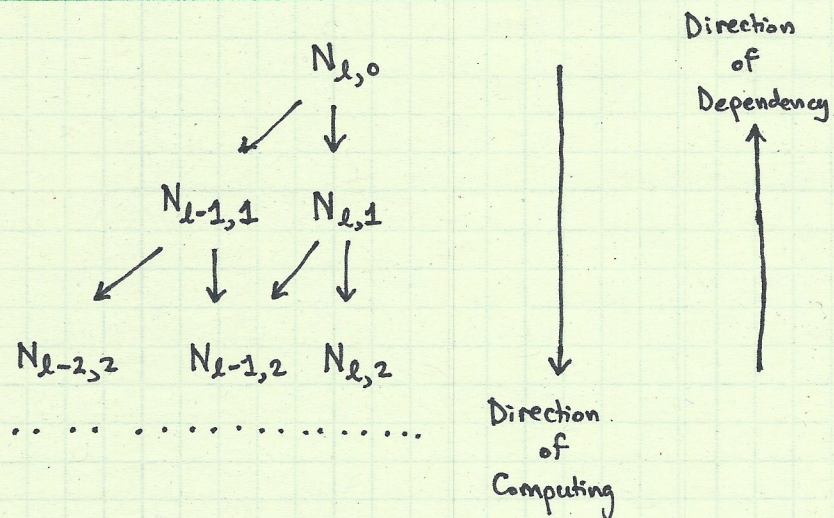 Nℓ,0
Nℓ-1,1 Nℓ,1
Nℓ-2,2 Nℓ-1,2 Nℓ,2
Direction
of
Computing
Direction
of
Dependency